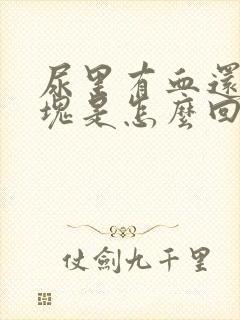 尿里有血還
塊是怎麼回
仗劍九千里